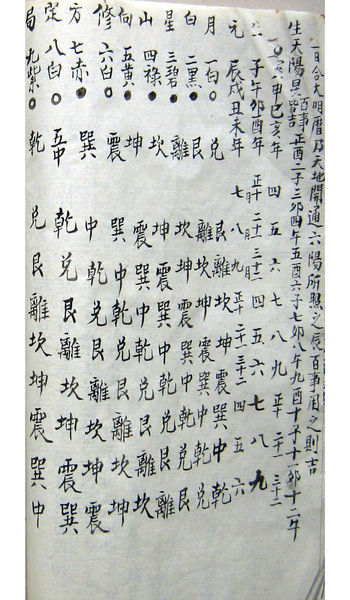 一日合大明曆乃天地開通六陽所照之辰百事用之則吉
生天陽具百事皆吉正酉二子三卯四午五酉六子七卯八午九酉十子十一卯十二午
寅申巳亥年 四 五 六 七 八 九 正十 二十一 三十二
子午卯酉年 正十月 二十一月 三十二月 四 五 六 七 八 九
元 辰戌丑未年 七 八 九 正十 二十一 三十二 四 五 六
月 一白 兌 艮 離 坎 坤 震 巽 中 乾
白 二黑 艮 離 坎 坤 震 巽 中 乾 兌
星 三碧 離 坎 坤 震 巽 中 乾 兌 艮
山 四祿 坎 坤 震 巽 中 乾 兌 艮 離
向 五黃 坤 震 巽 中 乾 兌 艮 離 坎
修 六白 震 巽 中 乾 兌 艮 離 坎 坤
方 七赤 巽 中 乾 兌 艮 離 坎 坤 震
定 八白 中 乾 兌 艮 離 坎 坤 震 巽
局 九紫 乾 兌 艮 離 坎 坤 震 巽 中